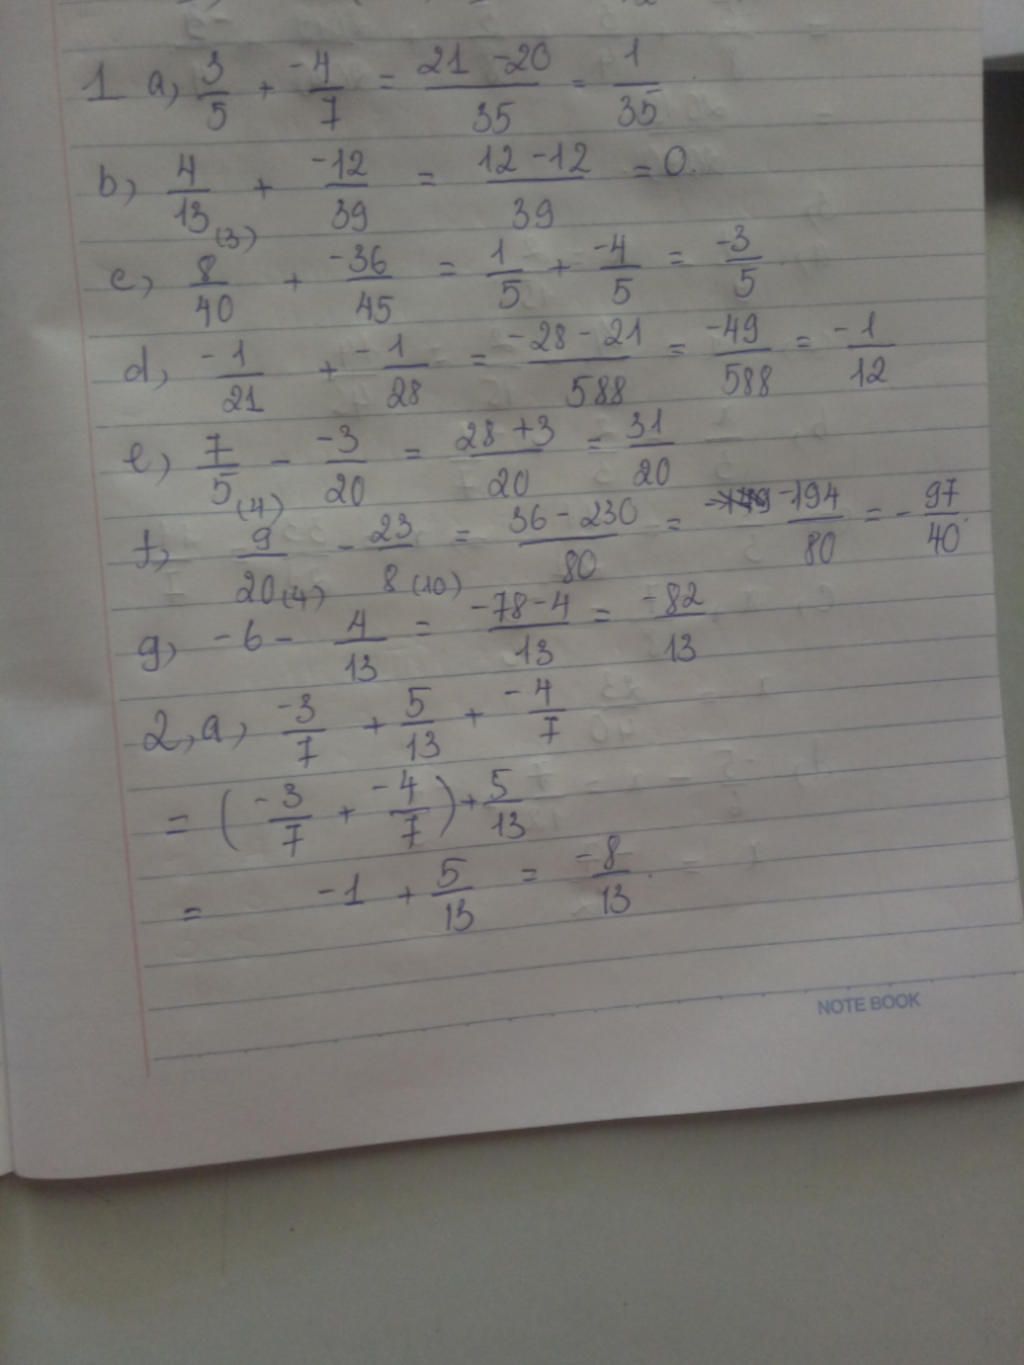 1 a, 3/5 + -4/7 = 21 -20/35 = 1/35
b, 4/13(3) + -12/39 = 12 -12/39 = 0.
c, 8/40 + -36/45 = 1/5 + -4/5 = -3/5.
d, -1/21 + -1/28 = -28 - 21/588 = -49/588 = -1/12
e, 7/5(4) - -3/20 = 28 +3/20 = 31/20
f, 9/20(4) - 23/8(10) = 36 - 230/80 = -194/80 = -97/40.
g, -6 - 4/13 = -78 -4/13 = -82/13
2, a, -3/7 + 5/13 + -4/7
= (-3/7 + -4/7) + 5/13
= -1 + 5/13 = -8/13.
NOTE BOOK